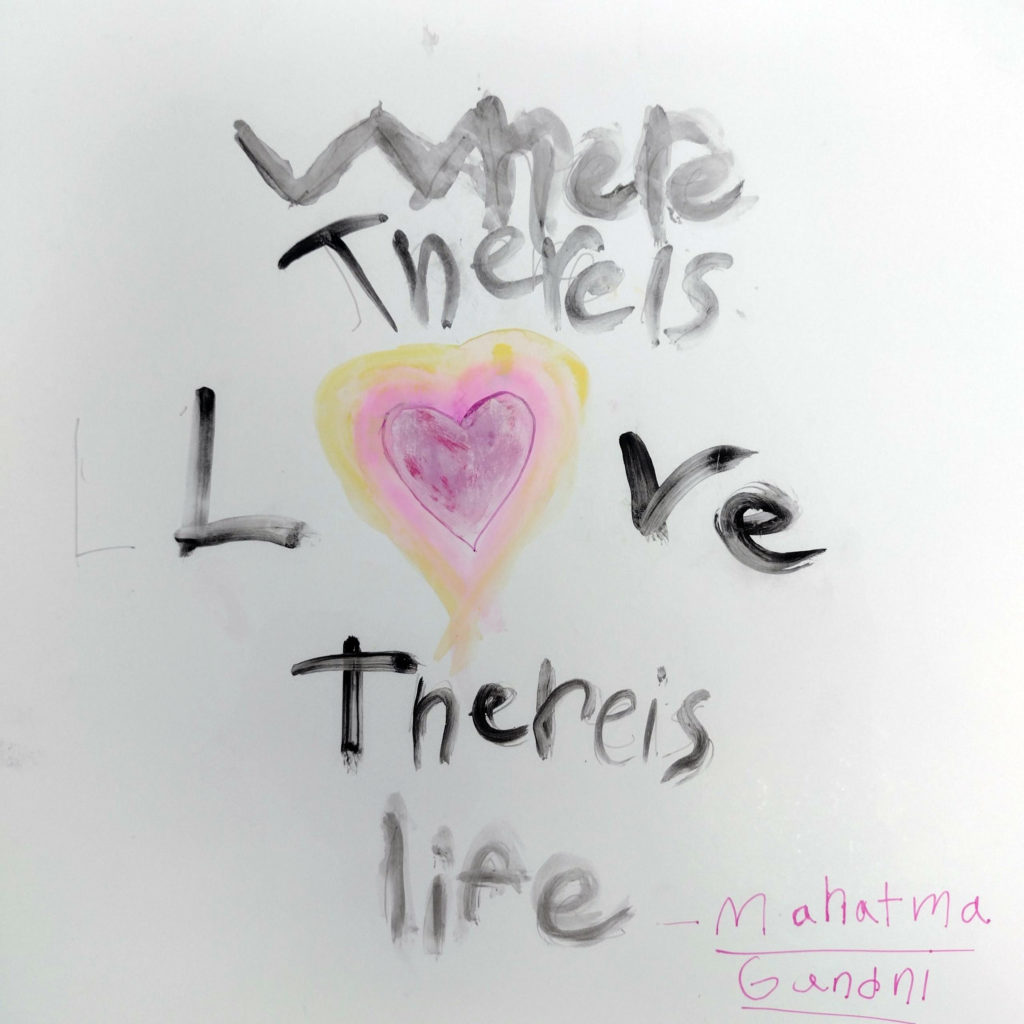 Where
There is
L ve
There is
life
- Mahatma
Gandhi